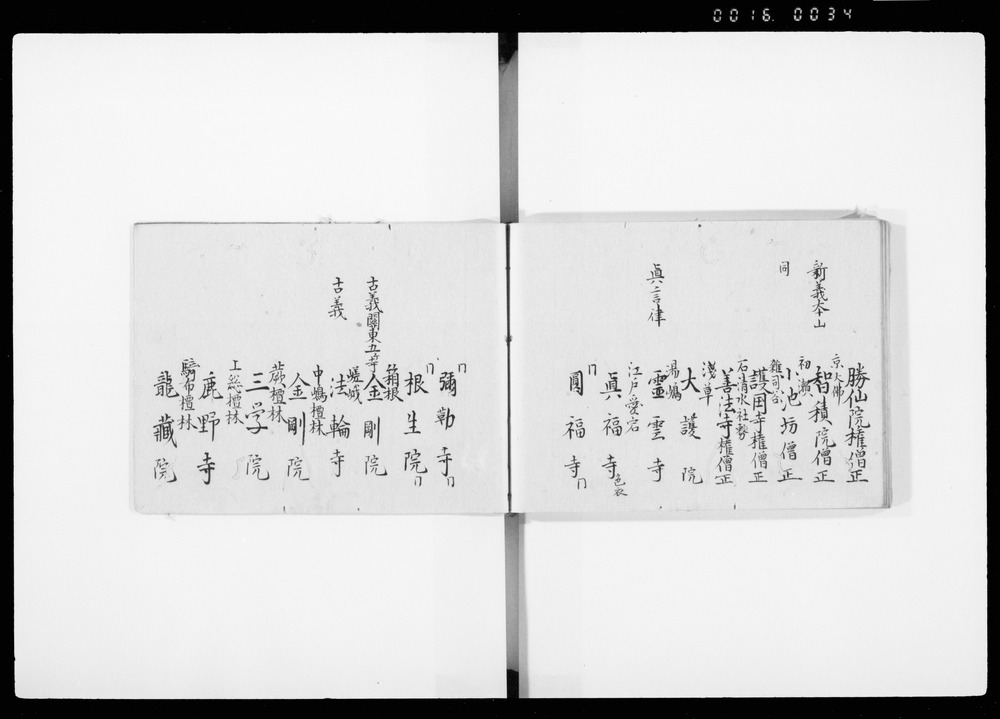 0016. 0034
勝仙院権僧正
新義本山
京大佛
智積院僧正
同
初瀬
小池坊僧正
雜司谷
護国寺権僧正
石清水社務
善法寺権僧正
浅草
大護院
湯嶋
眞言律
霊雲寺
江戸愛宕
眞福寺色衣
〃
圓福寺〃
〃
彌勒寺〃
〃
根生院〃
箱根
古義關東五ヶ寺
金剛院
嵯峨
古義
法輪寺
中嶋檀林
金剛院
蕨檀林
三学院
上総檀林
鹿野寺
騎西檀林
龍蔵院